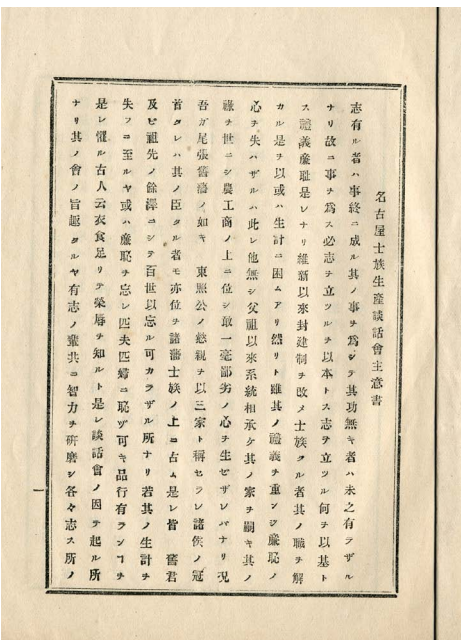 名古屋士族生産談話會主意書
志有ル者ハ事終ニ成ル其ノ事ヲ為シテ其功無キ者ハ未之有ラザル
ナリ故ニ事ヲ為ス必志ヲ立ツルヲ以本トス志ヲ立ツル何ヲ以基ト
ス禮義廉耻是レナリ維新以來封建制ヲ改メ士族タル者其ノ職ヲ解
カル是ヲ以或ハ生計ニ困ムアリ然リト雖其ノ禮義ヲ重ンジ廉恥ノ
心ヲ失ハザルハ此レ他無シ父祖以來系統相承ケ其ノ家ヲ嗣キ其ノ
祿ヲ世ニシ農工商ノ上ニ位シ敢一毫鄙劣ノ心ヲ生ゼザレバナリ况
吾ガ尾張舊藩ノ如キ 東照公ノ懿親ヲ以三家ト稱セラレ諸侯ノ冠
首タレハ其ノ臣タル者モ亦位ヲ諸藩士族ノ上ニ占ム是レ皆 舊君
及ビ祖先ノ餘澤ニシテ百世以忘ル可カラザル所ナリ若其ノ生計ヲ
失フニ至ルヤ或ハ廉恥ヲ忘レ匹夫匹婦ニ恥ヅ可キ品行有ランヿヲ
是レ懼ル古人云衣食足リテ榮辱ヲ知ルト是レ談話會ノ因テ起ル所
ナリ其ノ會ノ旨趣タルヤ有志ノ輩共ニ智力ヲ研磨シ各々志ス所ノ
一